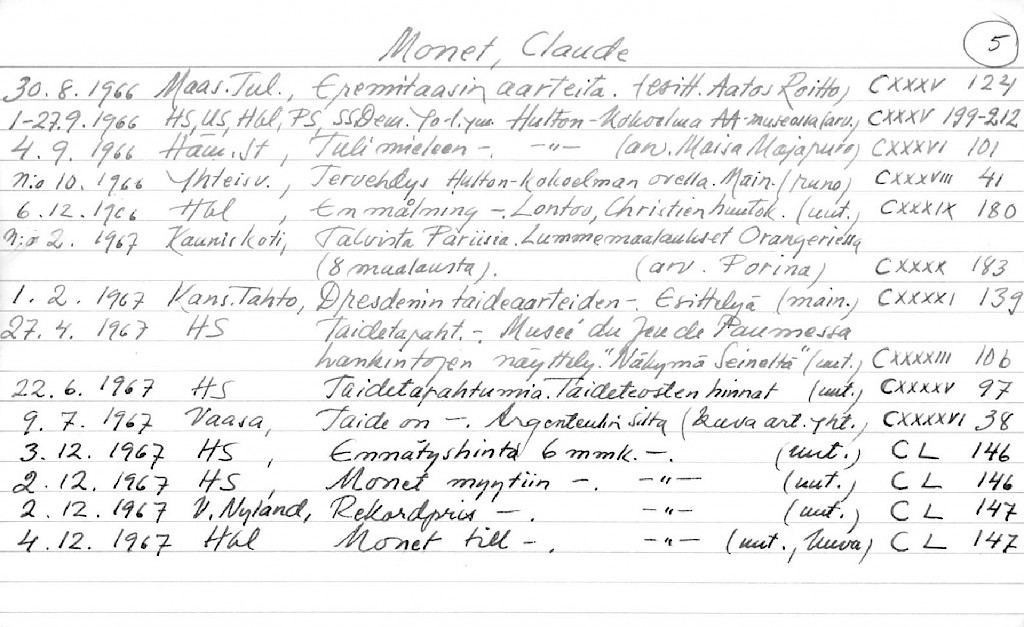 Monet, Claude
5
30.8.1966 Maas.Tul., Eremitaasin aarteita. (esitt. Aatos Roitto) CXXXV 124
1-27.9.1966 HS, US, Hbl, PS, SSDem. Yo-l.ym. Hulton-Kokoelma AA-museossa (arv.) CXXXV 199-212
4.9.1966 Häm.st, Tuli mieleen -. -"- (arv. Maisa Majapuro) CXXXVI 101
n:o 10.1966 Yhteisv., Tervehdys Hulton-Kokoelman ovella. Main. (runo) CXXXVIII 41
6.12.1966 Hbl, En målning -. Lontoo, Christien huutok. (uut.) CXXXIX 180
n:o 2. 1967 Kauniskoti, Talvista Pariisia. Lummemaalaukset Orangeriessa
(8 maalausta). (arv. Porina) CXXXX 183
1.2.1967 Kans.Tahto, Dresdenin taideaarteiden -. Esittelyä (main.) CXXXXI 139
27.4.1967 HS Taidetapaht. -. Museé du Jeu de Paumessa
hankintojen näyttely. "Näkymä Seineltä" (uut.) CXXXXIII 106
22.6.1967 HS Taidetapahtumia. Taideteosten hinnat (uut.) CXXXXV 97
9.7.1967 Vaasa, Taide on -. Argenteulin silta (kuva art. yht.) CXXXXVI 38
3.12.1967 HS, Ennätyshinta 6 mmk. -. (uut.) CL 146
2.12.1967 HS, Monet myytiin -. -"- (uut.) CL 146
2.12.1967 V. Nyland, Rekordpris -. -"- (uut.) CL 147
4.12.1967 Hbl Monet till -. -"- (uut., kuva) CL 147